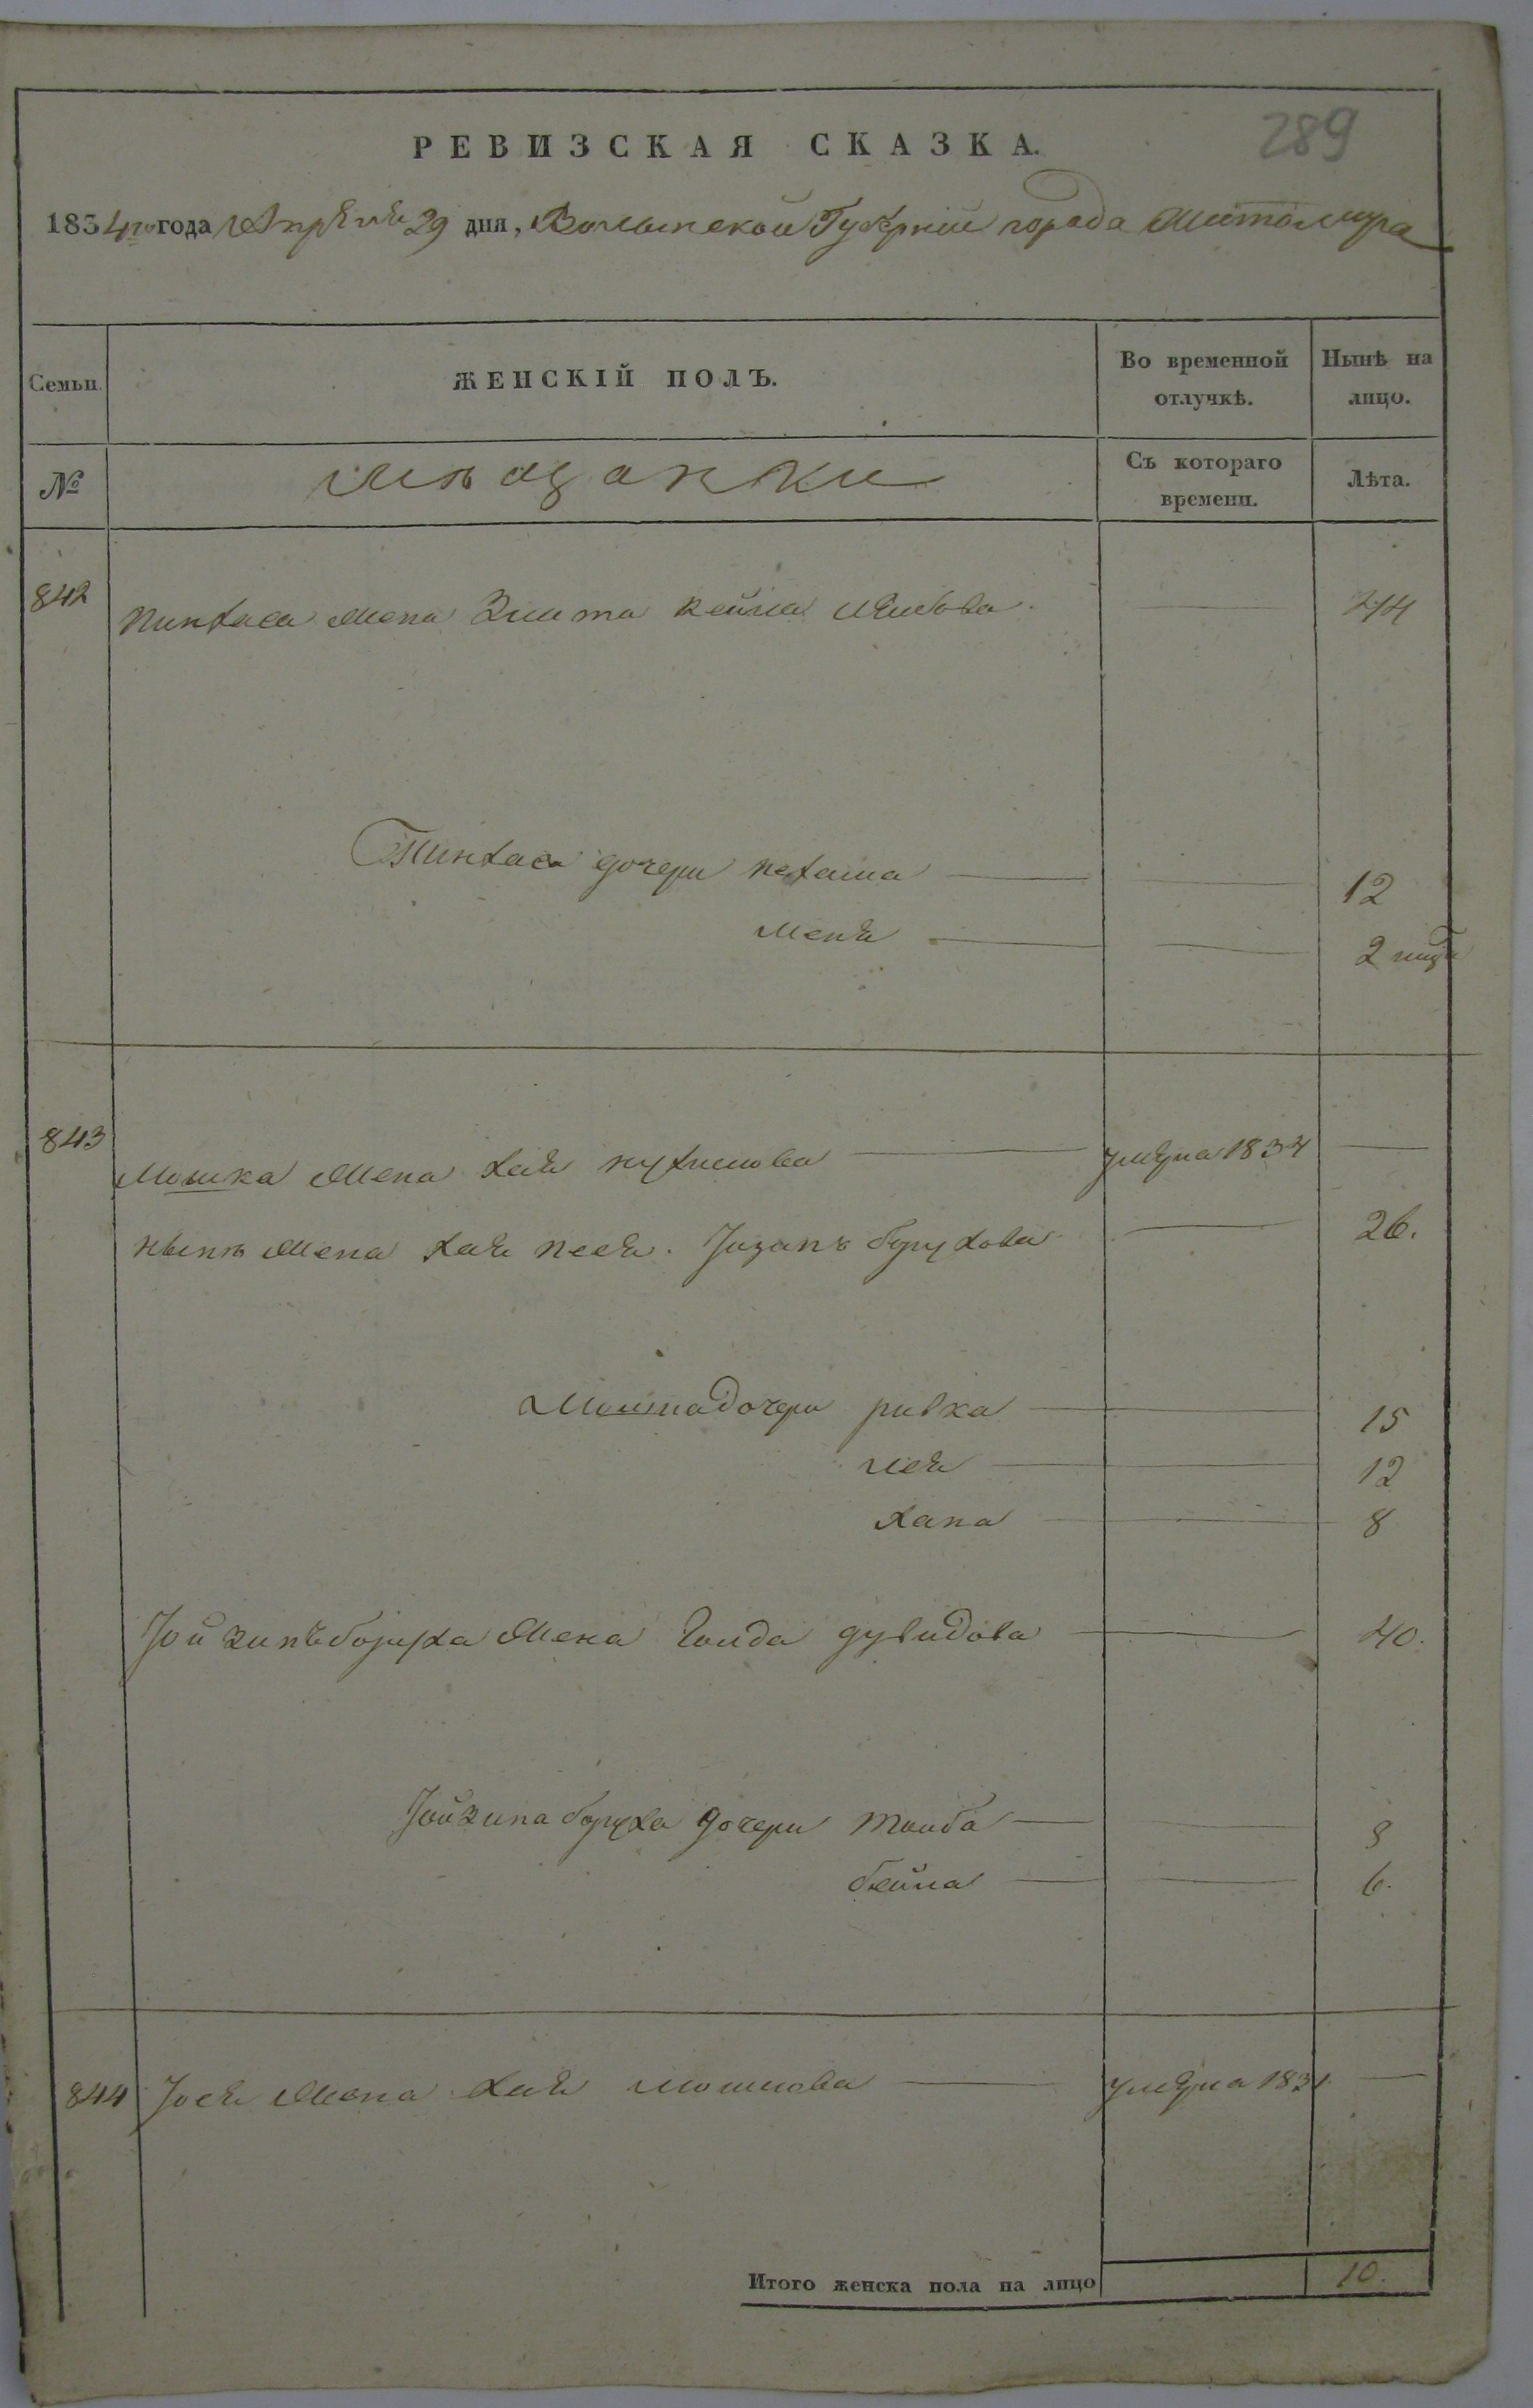 289
РЕВИЗСКАЯ СКАЗКА.
1834го года Апреля 29 дня, Волынской Губернии города Житомира
Семьи. ЖЕНСКІЙ ПОЛЪ. Во временной отлучкѣ. Нынѣ на лицо.
№ мѣщанки Съ котораго времени. Лѣта.
842 Пинхаса жена Злота Лейбова 44
Пинхаса дочери 12
Меня 2
843 Мошка жена хая нухимова умерла 1834
нынѣ жена хая песя борухова 26.
Мошка дочери ривка 15
лея 12
хана 8
Йойзипъ боруха жена голда дувидова 40.
Йойзипа боруха дочери тоиба 8
бейла 6.
844 Йося жена хая мошкова умерла 1831
Итого женска пола на лицо 10.